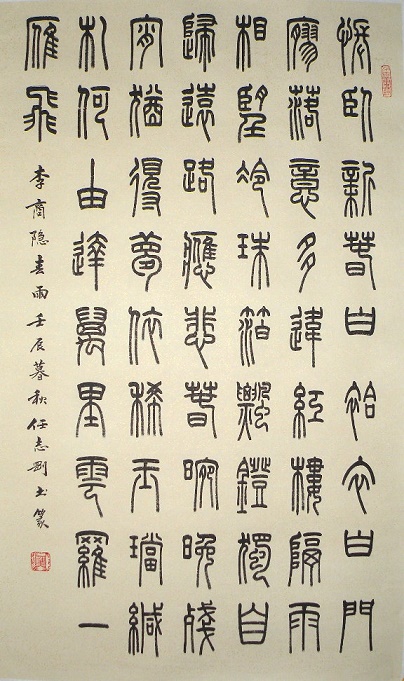 悵臥新春白袷衣白門
寥落意多違紅樓隔雨
相望冷珠箔飄鐙獨自
歸遠路應悲春晼晚殘
宵猶得夢依稀玉璫緘
札何由達萬里雲羅一
雁飛
李商隐春雨壬辰暮秋任志剛书篆